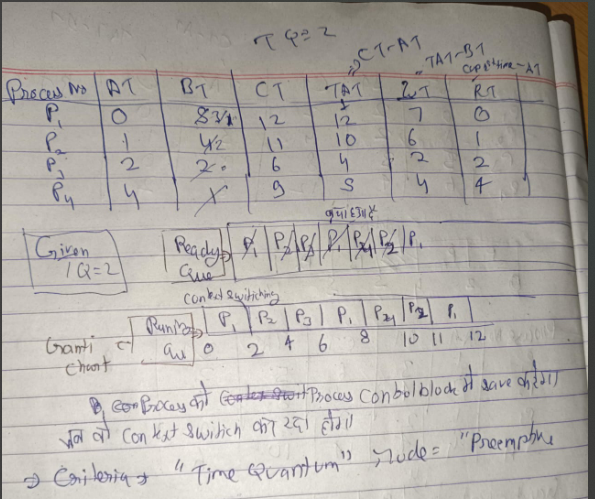 TQ=2
CT-AT
TAT-BT
Process No AT BT CT TAT WT RT
P1 0 8 3 1 12 12 7 0
P2 1 4 2 11 10 6 1
P3 2 2 6 4 2 2
P4 4 1 9 5 4 4
Given TQ=2
Ready Que P1 P2 P3 P1 P4 P2 P1
Context Switiching
Runing Qu P1 P2 P3 P1 P4 P2 P1
Grantt chart 0 2 4 6 8 10 11 12
Process को Process Control block में save करेगा
Context Switich कर रहा होगा
⇒ Criteria → "Time Quantum" Mode = "Preemptive